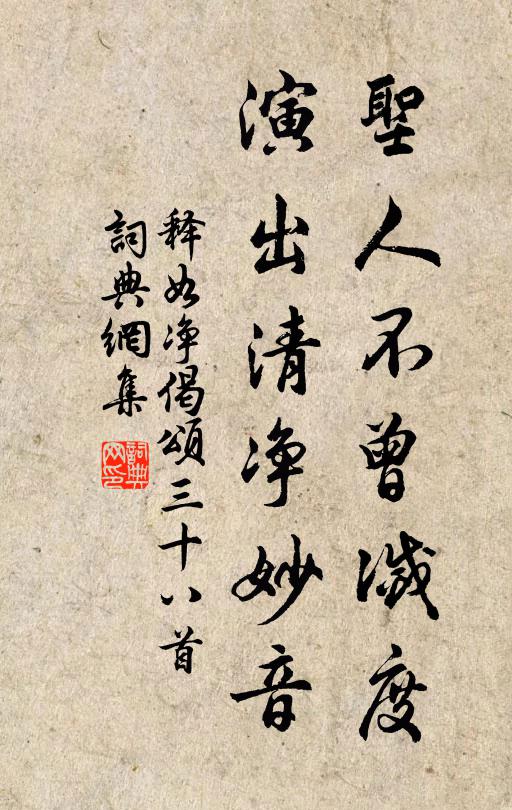 聖人不曾滅度
演出清净妙音
释如净偈頌三十八首
詞典網集
詞典网印